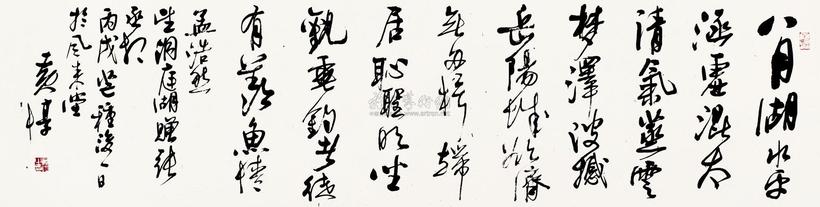 八月湖水平
涵虛混太
清氣蒸雲
夢澤波撼
岳陽城欲濟
無舟楫端
居恥聖明坐
觀垂釣者徒
有羨魚情
孟浩然
望洞庭湖贈張
丞相
丙戌芒種後一日
於風來堂
黃惇